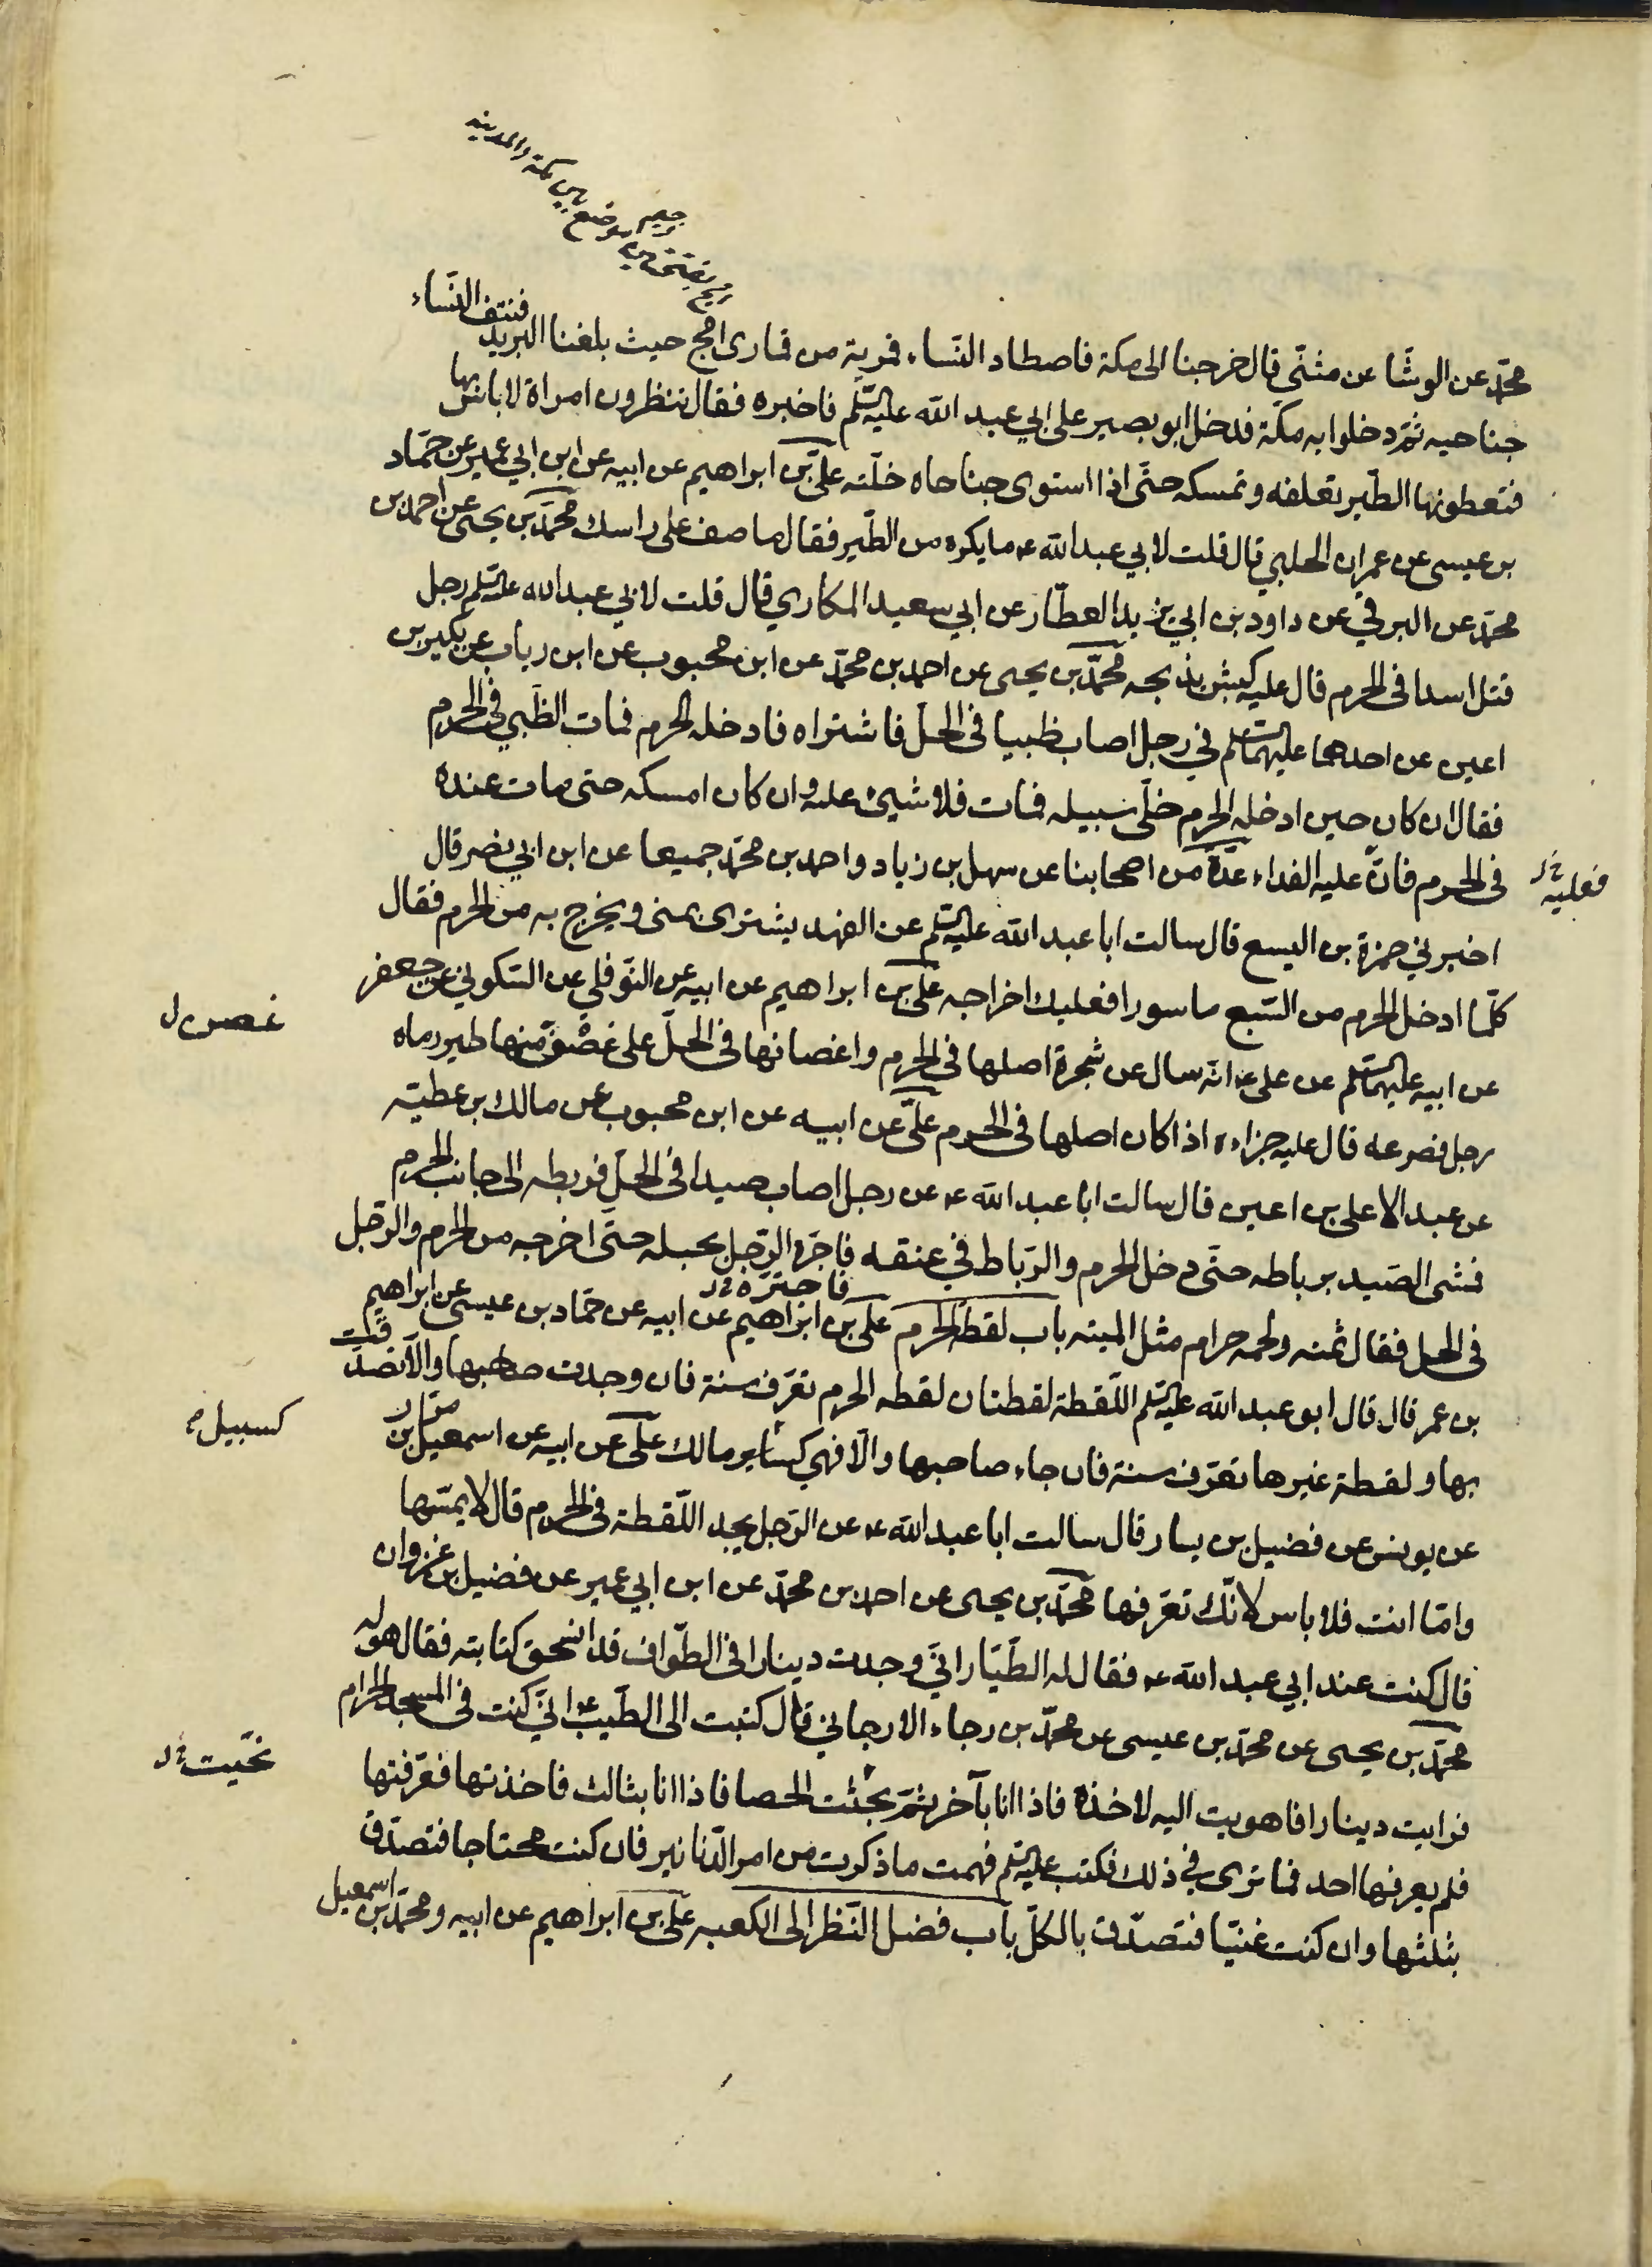 امج بفتحتين وجيم موضع بين مكة والمدينه
محمّد عن الوشّا عن مثنّى قال خرجنا الى مكة فاصطاد النّساء قمرية من قمارى امج حيث بلغنا البريد فنتف النّساء
جناحيه ثمّ دخلوا به مكة فدخل ابو بصير على ابي عبد الله عليه السّلم فاخبره فقال تنظرون امراة لا باس بها
فتعطونها الطّير تعلفه وتمسكه حتّى اذا استوى جناحاه خلّته علىّ بن ابراهيم عن ابيه عن ابن ابي عمير عن حمّاد
بن عيسى عن عمران الحلبي قال قلت لابي عبد الله ع ما يكره من الطّير فقال ما صف على راسك محمّد بن يحيى عن احمد بن
محمّد عن البرقي عن داود بن ابي يزيد العطّار عن ابي سعيد المكاري قال قلت لابي عبد الله عليه السّلم رجل
قتل اسدا فى الحرم قال عليه كبش يذبحه محمّد بن يحيى عن احمد بن محمّد عن ابن محبوب عن ابن رياب عن بكير بن
اعين عن احدهما عليهما السّلم في رجل اصاب ظبيا فى الحلّ فاشتراه فادخله الحرم فمات الظّبي فى الحرم
فقال ان كان حين ادخله الحرم خلّى سبيله فمات فلا شيئ عليه وان كان امسكه حتى مات عنده
فى الحرم فانّ عليه الفداء عدّة من اصحابنا عن سهل بن زياد واحمد بن محمّد جميعا عن ابن ابي نصر قال
فعليه
اخبرني حمزة بن اليسع قال سالت ابا عبد الله عليه السّلم عن الفهد يشترى بمنى ويخرج به من الحرم فقال
كلّما ادخل الحرم من السّبع ماسورا فعليك اخراجه علىّ بن ابراهيم عن ابيه عن النّوفلي عن السّكوني عن جعفر
عن ابيه عليهما السّلم عن على ع انّه سال عن شجرة اصلها فى الحرم واغصانها فى الحلّ على غصن منها طير رماه
غصن ل
رجل فصرعه قال عليه جزاءه اذا كان اصلها فى الحرم علىّ عن ابيه عن ابن محبوب عن مالك بن عطيّه
عن عبد الاعلى بن اعين قال سالت ابا عبد الله ع عن رجل اصاب صيدا فى الحلّ فربطه الى جانب الحرم
فمشى الصّيد برباطه حتّى دخل الحرم والرّباط في عنقه فاجرّه الرّجل بحبله حتّى اخرجه من الحرم والرّجل
فاجترّه
فى الحل فقال ثمنه ولحمه حرام مثل الميته باب لقطة الحرم علىّ بن ابراهيم عن ابيه عن حمّاد بن عيسى عن ابراهيم
بن عمر قال قال ابو عبد الله عليه السّلم اللّقطة لقطتان لقطه الحرم تعرّف سنة فان وجدت صاحبها والّا تصدّقت
بها ولقطة غيرها تعرّف سنة فان جاء صاحبها والّا فهي كساير مالك علىّ عن ابيه عن اسمعيل بن مرّار
كسبيل
عن يونس عن فضيل بن يسار قال سالت ابا عبد الله ع عن الرّجل يجد اللّقطة فى الحرم قال لا يمسّها
وامّا انت فلا باس لانّك تعرّفها محمّد بن يحيى عن احمد بن محمّد عن ابن ابي عمير عن فضيل بن غزوان
قال كنت عند ابي عبد الله ع فقال له الطّيّار انّي وجدت دينارا فى الطّواف قد انسحق كتابته فقال هو له
محمّد بن يحيى عن محمّد بن عيسى عن محمّد بن رجاء الارجاني قال كتبت الى الطّيّب ع انّي كنت فى المسجد الحرام
فرايت دينارا فاهويت اليه لاخذه فاذا انا بآخر ثمّ بحثت الحصا فاذا انا بثالث فاخذتها فعرّفتها
نحّيت
فلم يعرفها احد فما ترى في ذلك فكتب عليه السّلم فهمت ما ذكرت من امر الدّنانير فان كنت محتاجا فتصدّق
بثلثها وان كنت غنيّا فتصدّق بالكلّ باب فضل النّظر الى الكعبه علىّ بن ابراهيم عن ابيه ومحمّد بن اسمعيل